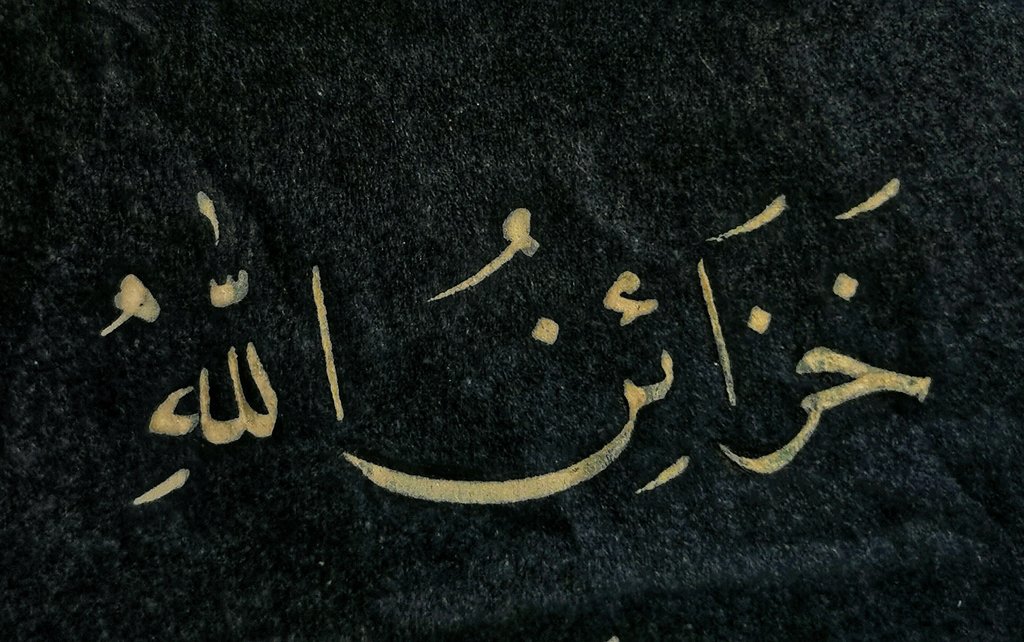 خَزَائِنُ اللّٰهُِ